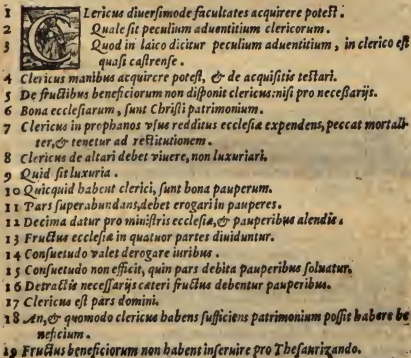 1 CLericus diuersimode facultates acquirere potest.
2 Quale sit peculium aduentitium clericorum.
3 Quod in laico dicitur peculium aduentitium, in clerico est
quasi castrense.
4 Clericus manibus acquirere potest, & de acquisitis testari.
5 De fructibus beneficiorum non disponit clericus: nisi pro necessarijs.
6 Bona ecclesiarum, sunt Christi patrimonium.
7 Clericus in prophanos vsus redditus ecclesiæ expendens, peccat mortali-
ter, & tenetur ad restitutionem.
8 Clericus de altari debet viuere, non luxuriari.
9 Quid sit luxuria.
10 Quicquid habent clerici, sunt bona pauperum.
11 Pars superabundans, debet erogari in pauperes.
12 Decima datur pro ministris ecclesiæ, & pauperibus alendis.
13 Fructus ecclesiæ in quatuor partes diuiduntur.
14 Consuetudo valet derogare iuribus.
15 Consuetudo non efficit, quin pars debita pauperibus soluatur.
16 Detractis necessarijs cæteri fructus debentur pauperibus.
17 Clericus est pars domini.
18 An, & quomodo clericus habens sufficiens patrimonium possit habere be
neficium.
19 Fructus beneficiorum non habent inseruire pro Thesaurizando.